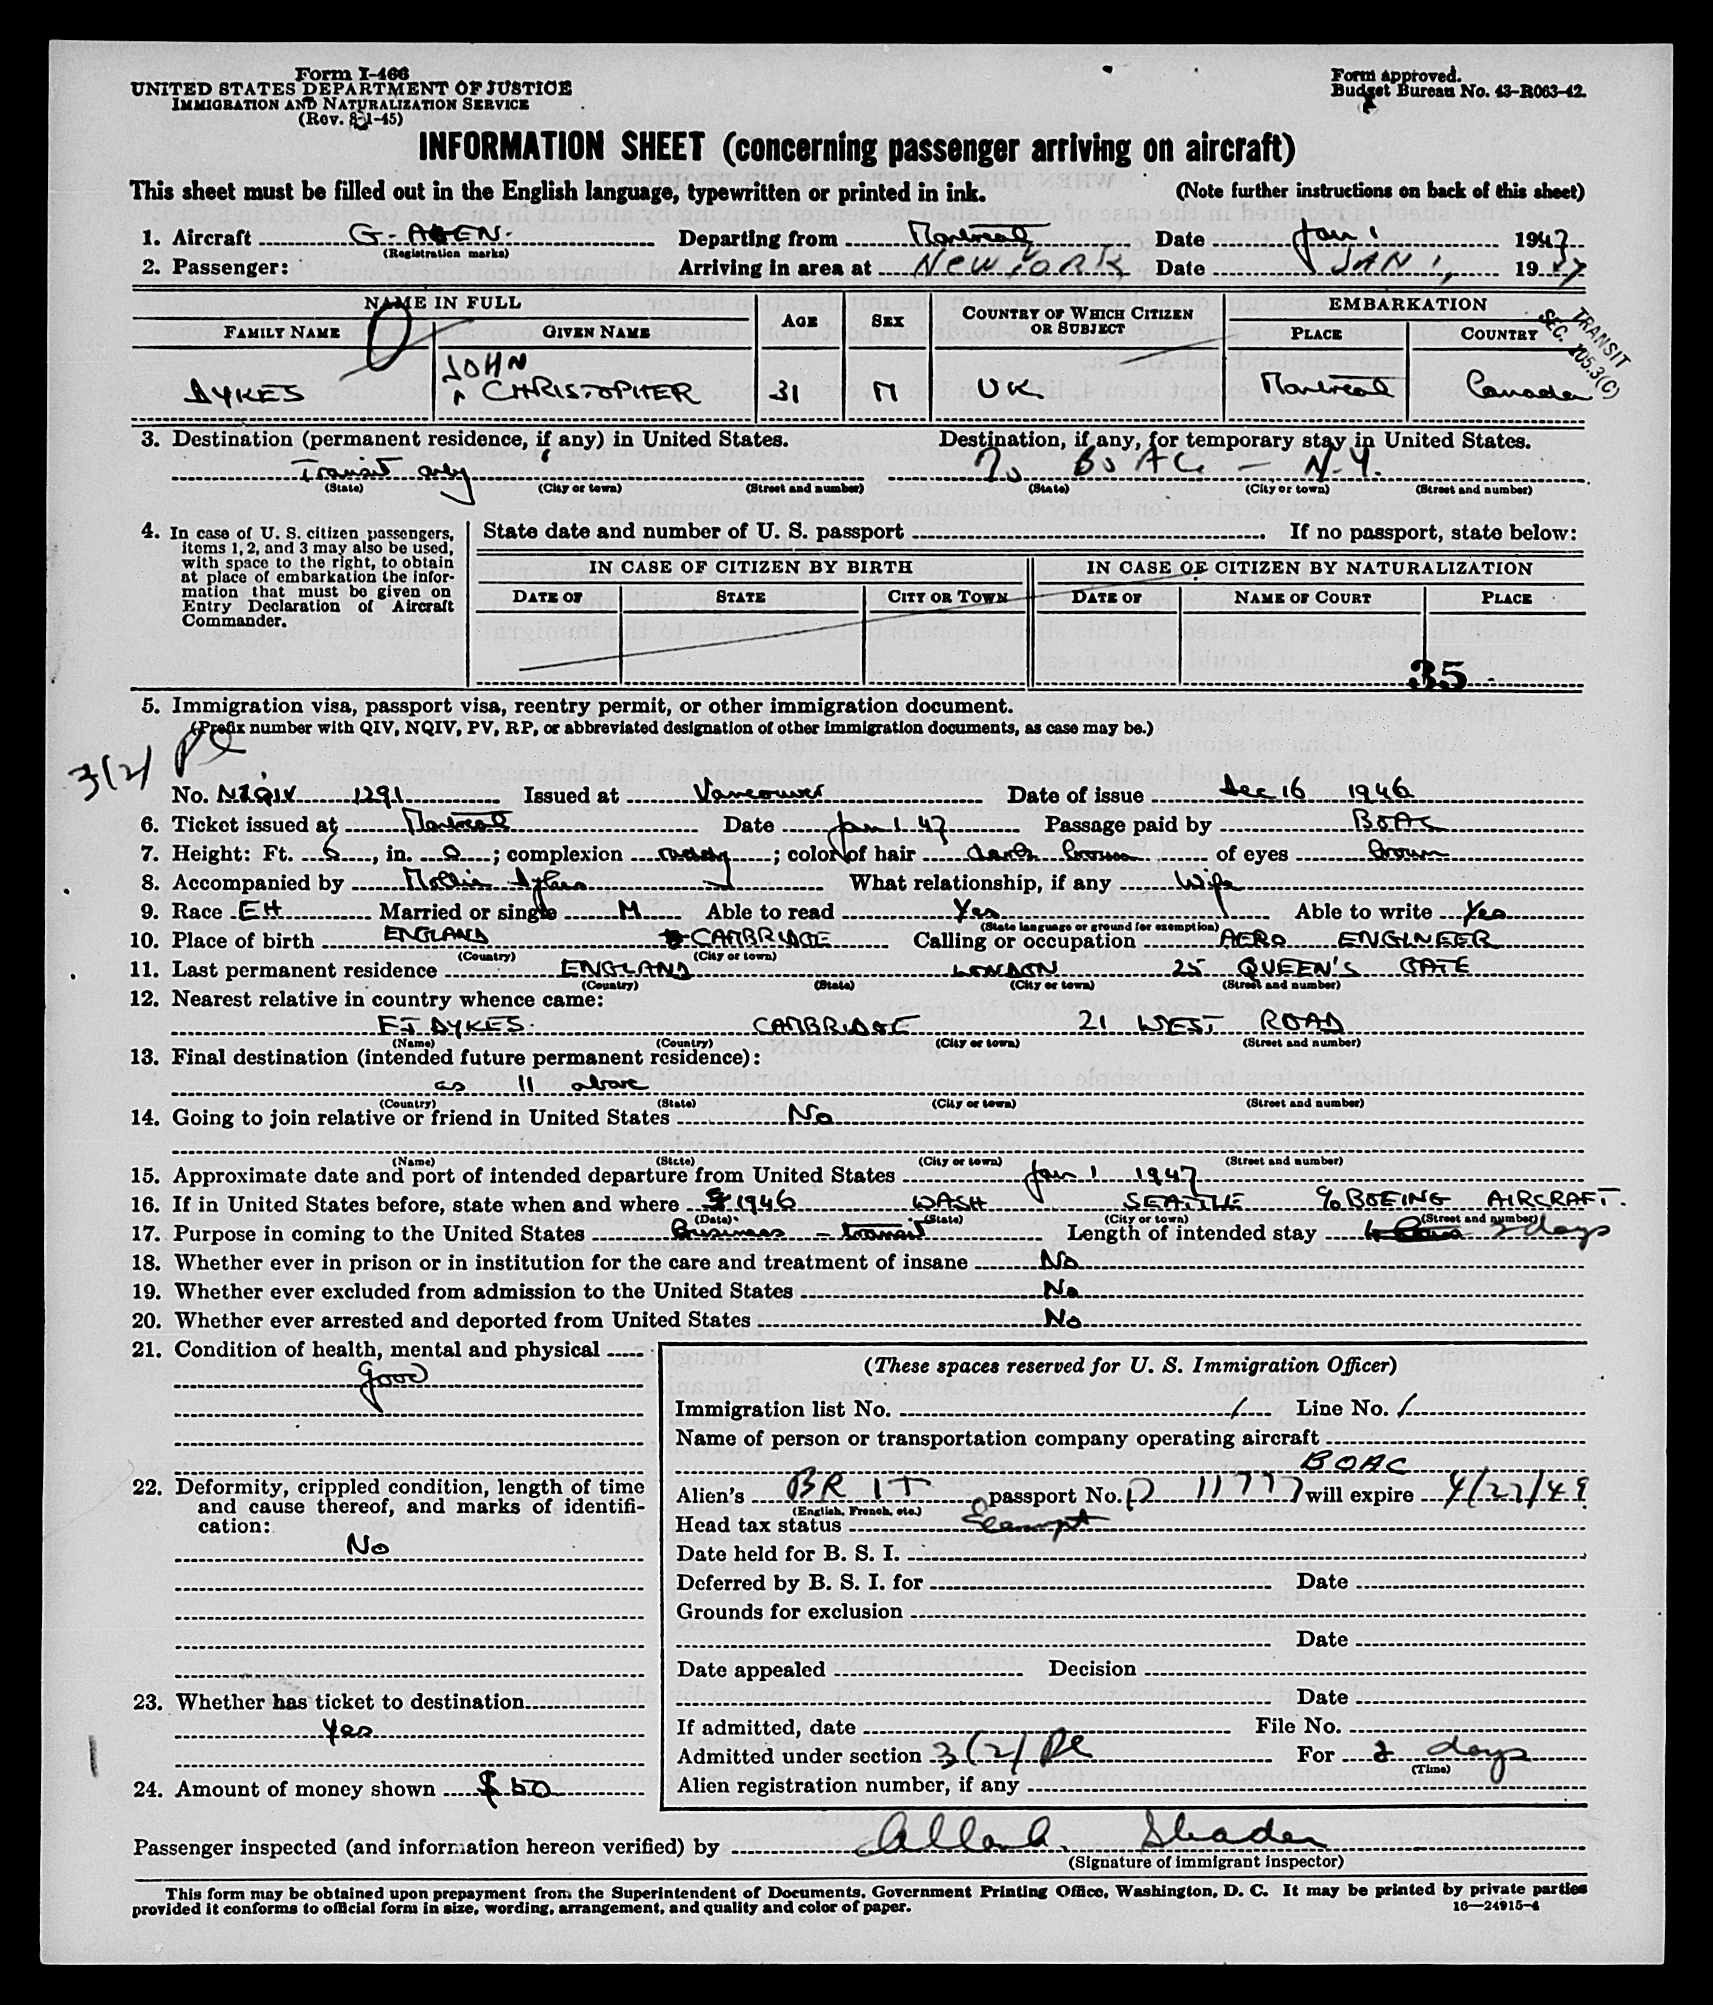 Form I-466
UNITED STATES DEPARTMENT OF JUSTICE
IMMIGRATION AND NATURALIZATION SERVICE
(Rev. 8-1-45)
Form approved.
Budget Bureau No. 43-R063-42.
INFORMATION SHEET (concerning passenger arriving on aircraft)
This sheet must be filled out in the English language, typewritten or printed in ink. (Note further instructions on back of this sheet)
1. Aircraft G-AGEN. Departing from Montreal Date Jan 1 1947
(Registration marks)
2. Passenger: Arriving in area at New York Date JAN 1, 1947
NAME IN FULL AGE SEX COUNTRY OF WHICH CITIZEN OR SUBJECT EMBARKATION
FAMILY NAME GIVEN NAME PLACE COUNTRY
TRANSIT
SEC. 105.3(C)
JOHN
DYKES CHRISTOPHER 31 M UK. Montreal Canada
3. Destination (permanent residence, if any) in United States. Destination, if any, for temporary stay in United States.
Transit only To BOAC - N.Y.
(State) (City or town) (Street and number) (State) (City or town) (Street and number)
4. In case of U. S. citizen passengers, items 1, 2, and 3 may also be used, with space to the right, to obtain at place of embarkation the information that must be given on Entry Declaration of Aircraft Commander.
State date and number of U. S. passport . If no passport, state below:
IN CASE OF CITIZEN BY BIRTH IN CASE OF CITIZEN BY NATURALIZATION
DATE OF STATE CITY OR TOWN DATE OF NAME OF COURT PLACE
35
5. Immigration visa, passport visa, reentry permit, or other immigration document.
(Prefix number with QIV, NQIV, PV, RP, or abbreviated designation of other immigration documents, as case may be.)
3(2) Pl
No. NQIV 1291 Issued at Vancouver Date of issue Dec 16 1946
6. Ticket issued at Montreal Date Jan 1 47 Passage paid by BOAC
7. Height: Ft. 6, in. 0; complexion ruddy; color of hair dark brown of eyes brown
8. Accompanied by Mollie Dykes What relationship, if any Wife
9. Race EH Married or single M Able to read Yes Able to write Yes
(State language or ground for exemption)
10. Place of birth ENGLAND CAMBRIDGE Calling or occupation AERO ENGINEER
(Country) (City or town)
11. Last permanent residence ENGLAND LONDON 25 QUEEN'S GATE
(Country) (State) (City or town) (Street and number)
12. Nearest relative in country whence came:
FJ DYKES. CAMBRIDGE 21 WEST ROAD
(Name) (Country) (City or town) (Street and number)
13. Final destination (intended future permanent residence):
as 11 above
(Country) (State) (City or town) (Street and number)
14. Going to join relative or friend in United States No
(Name) (State) (City or town) (Street and number)
15. Approximate date and port of intended departure from United States Jan 1 1947
16. If in United States before, state when and where 1946 WASH SEATTLE c/o BOEING AIRCRAFT.
(Date) (State) (City or town) (Street and number)
17. Purpose in coming to the United States Business - transit Length of intended stay 2 days
18. Whether ever in prison or in institution for the care and treatment of insane No
19. Whether ever excluded from admission to the United States No
20. Whether ever arrested and deported from United States No
21. Condition of health, mental and physical
good
22. Deformity, crippled condition, length of time and cause thereof, and marks of identification:
No
23. Whether has ticket to destination
Yes
24. Amount of money shown $50
(These spaces reserved for U. S. Immigration Officer)
Immigration list No. 1 Line No. 1
Name of person or transportation company operating aircraft
BOAC
Alien's BRIT passport No. P 11777 will expire 4/27/49
(English, French, etc.)
Head tax status Exempt
Date held for B. S. I.
Deferred by B. S. I. for Date
Grounds for exclusion
Date
Date appealed Decision
Date
If admitted, date File No.
Admitted under section 3(2) Pl For 2 days
(Time)
Alien registration number, if any
Passenger inspected (and information hereon verified) by
(Signature of immigrant inspector)
This form may be obtained upon prepayment from the Superintendent of Documents, Government Printing Office, Washington, D. C. It may be printed by private parties
provided it conforms to official form in size, wording, arrangement, and quality and color of paper. 16—24915-4